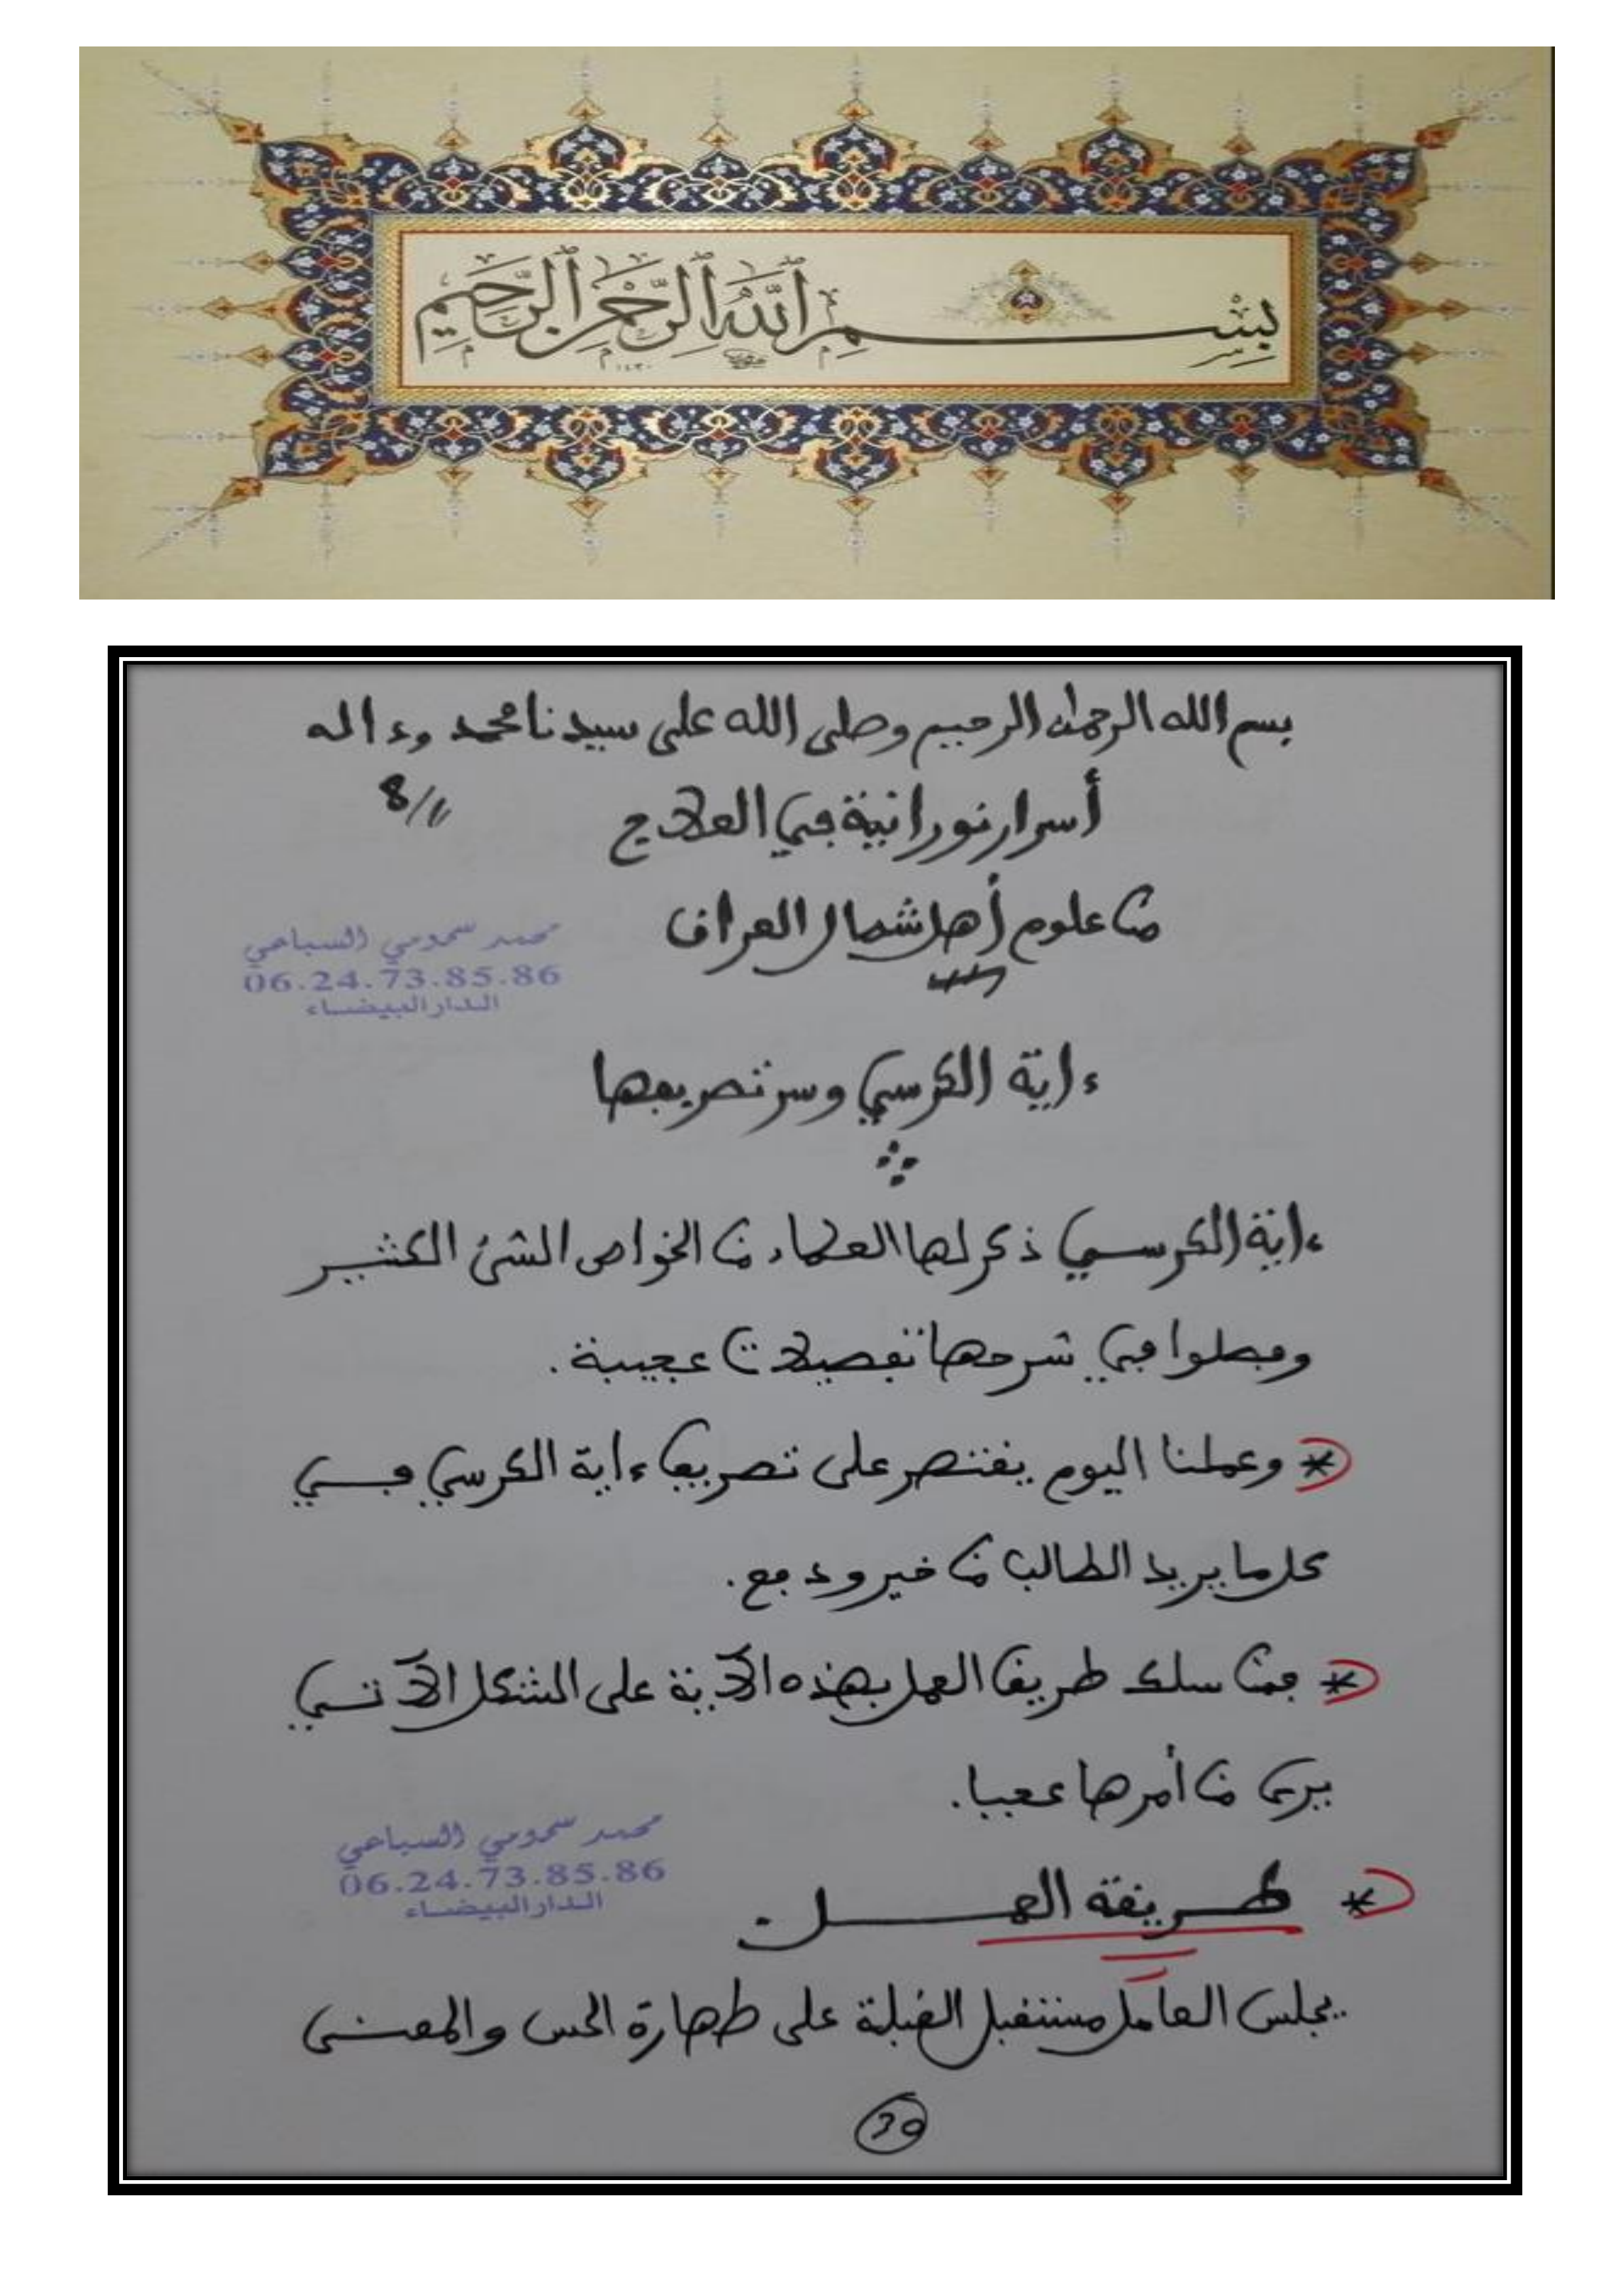 بسم الله الرحمن الرحيم
بسم الله الرحمان الرحيم وصلى الله على سيدنا محمد وءاله
8/
أسرار نورانية في العلاج
من علوم أهل شمال العراق
محمد سحومي السباعي
06.24.73.85.86
الدار البيضاء
ءاية الكرسي وسر تصريفها
ءاية الكرسي ذكر لها العلماء من الخواص الشئ الكثير
وفصلوا في شرحها تفصيلات عجيبة.
* وعملنا اليوم يقتصر على تصريف ءاية الكرسي في
كل ما يريد الطالب من خير ودفع.
* فمن سلك طريق العمل بهذه الآية على الشكل الآتي
يرى من أمرها عجبا.
محمد سحومي السباعي
06.24.73.85.86
الدار البيضاء
* طريقة العمل
يجلس العامل مستقبل القبلة على طهارة الحس والمعنى
30